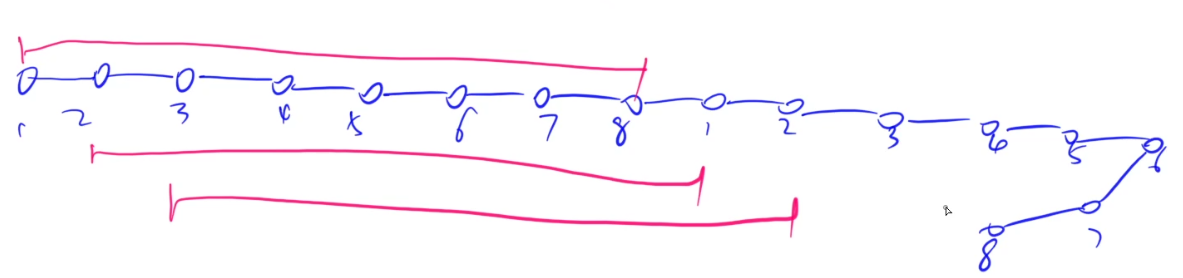 1 2 3 4 5 6 7 8 1 2 3 4 5 6 7 8